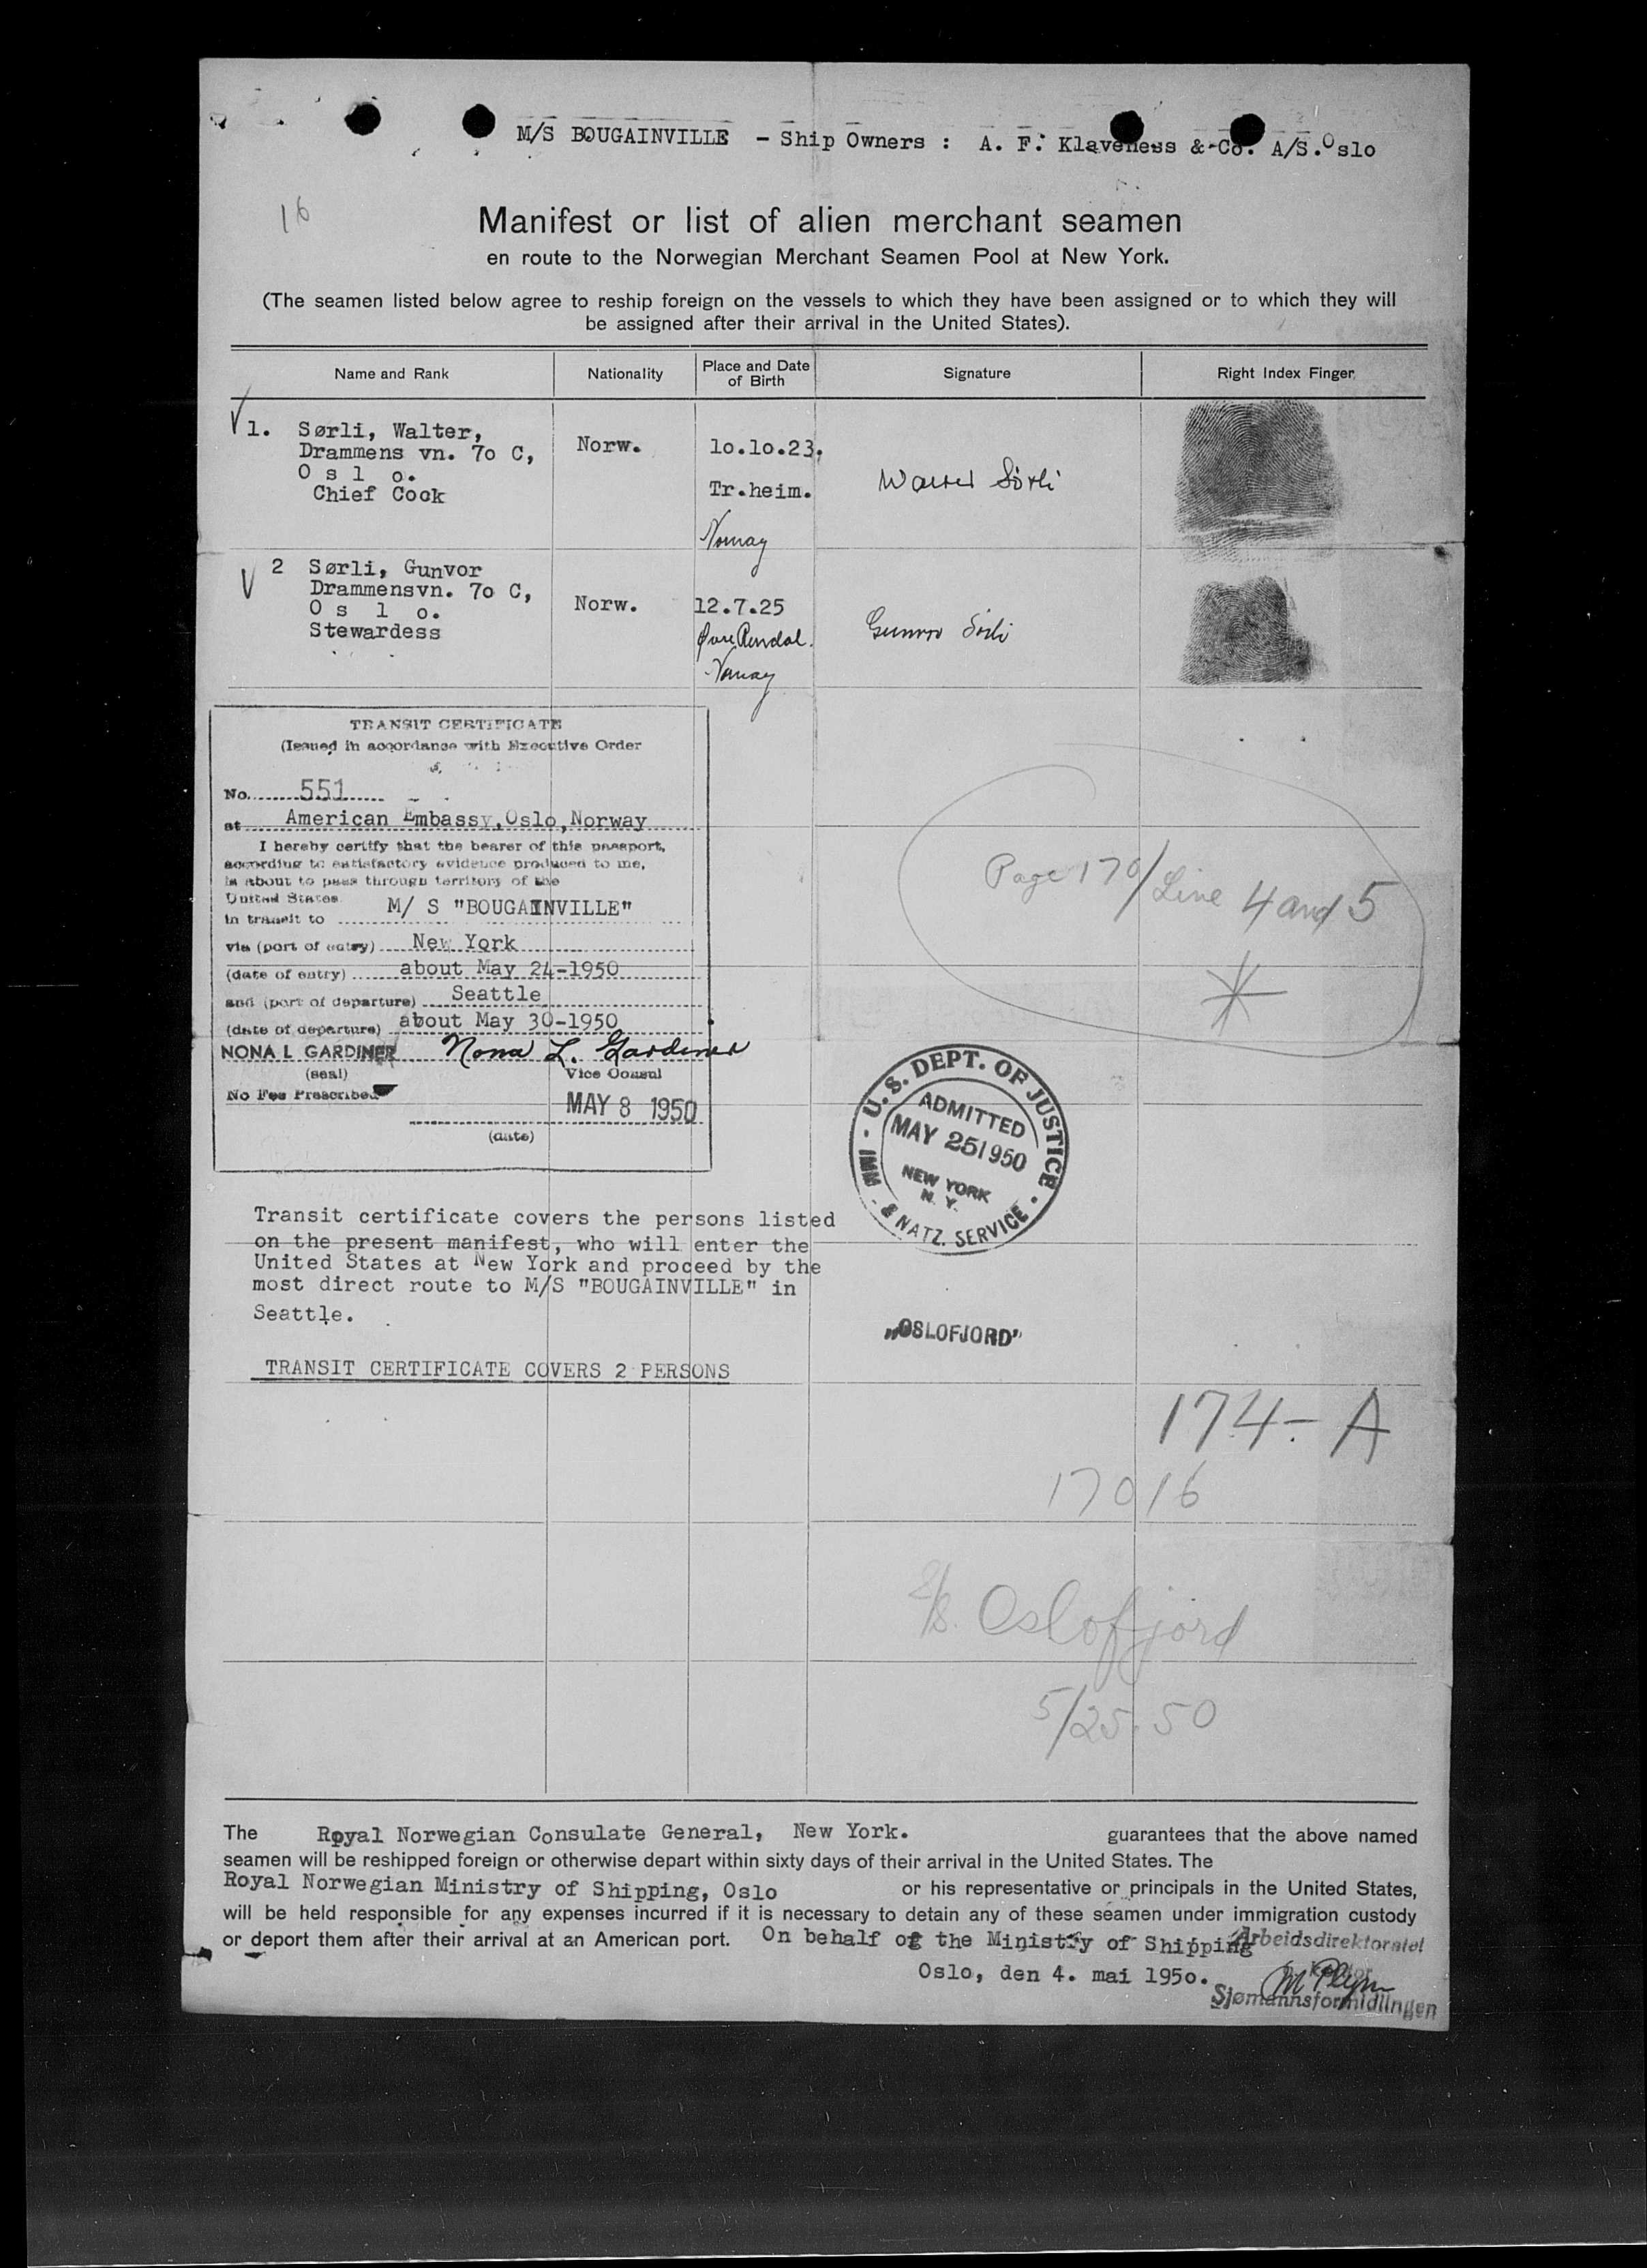 M/S BOUGAINVILLE - Ship Owners : A. F. Klaveness & Co. A/S. Oslo
16
Manifest or list of alien merchant seamen
en route to the Norwegian Merchant Seamen Pool at New York.
(The seamen listed below agree to reship foreign on the vessels to which they have been assigned or to which they will
be assigned after their arrival in the United States).
Name and Rank Nationality Place and Date of Birth Signature Right Index Finger
1. Sørli, Walter,
Drammens vn. 7o C,
O s l o.
Chief Cook
Norw.
lo.lo.23.
Tr.heim.
Norway
Walter Sörli
2 Sørli, Gunvor
Drammensvn. 7o C,
O s l o.
Stewardess
Norw.
12.7.25
Øvre Rendal.
Norway
Gunvor Sörli
TRANSIT CERTIFICATE
(Issued in accordance with Executive Order
No. 551
at American Embassy, Oslo, Norway
I hereby certify that the bearer of this passport,
according to satisfactory evidence produced to me,
is about to pass through territory of the
United States
in transit to M/ S "BOUGAINVILLE"
via (port of entry) New York
(date of entry) about May 24-1950
and (port of departure) Seattle
(date of departure) about May 30-1950
NONA L GARDINER Nona L. Gardiner
(seal) Vice Consul
No Fee Prescribed
MAY 8 1950
(date)
Page 170/ Line 4 and 5
U. S. DEPT. OF JUSTICE
ADMITTED
MAY 25 1950
NEW YORK
N. Y.
IMM. & NATZ. SERVICE
Transit certificate covers the persons listed
on the present manifest, who will enter the
United States at New York and proceed by the
most direct route to M/S "BOUGAINVILLE" in
Seattle.
„OSLOFJORD"
TRANSIT CERTIFICATE COVERS 2 PERSONS
174-A
170 16
S/S. Oslofjord
5/25.50
The Royal Norwegian Consulate General, New York. guarantees that the above named
seamen will be reshipped foreign or otherwise depart within sixty days of their arrival in the United States. The
Royal Norwegian Ministry of Shipping, Oslo or his representative or principals in the United States,
will be held responsible for any expenses incurred if it is necessary to detain any of these seamen under immigration custody
or deport them after their arrival at an American port. On behalf of the Ministry of Shipping
Arbeidsdirektoratet
Oslo, den 4. mai 195o.
Sjømannsformidlingen